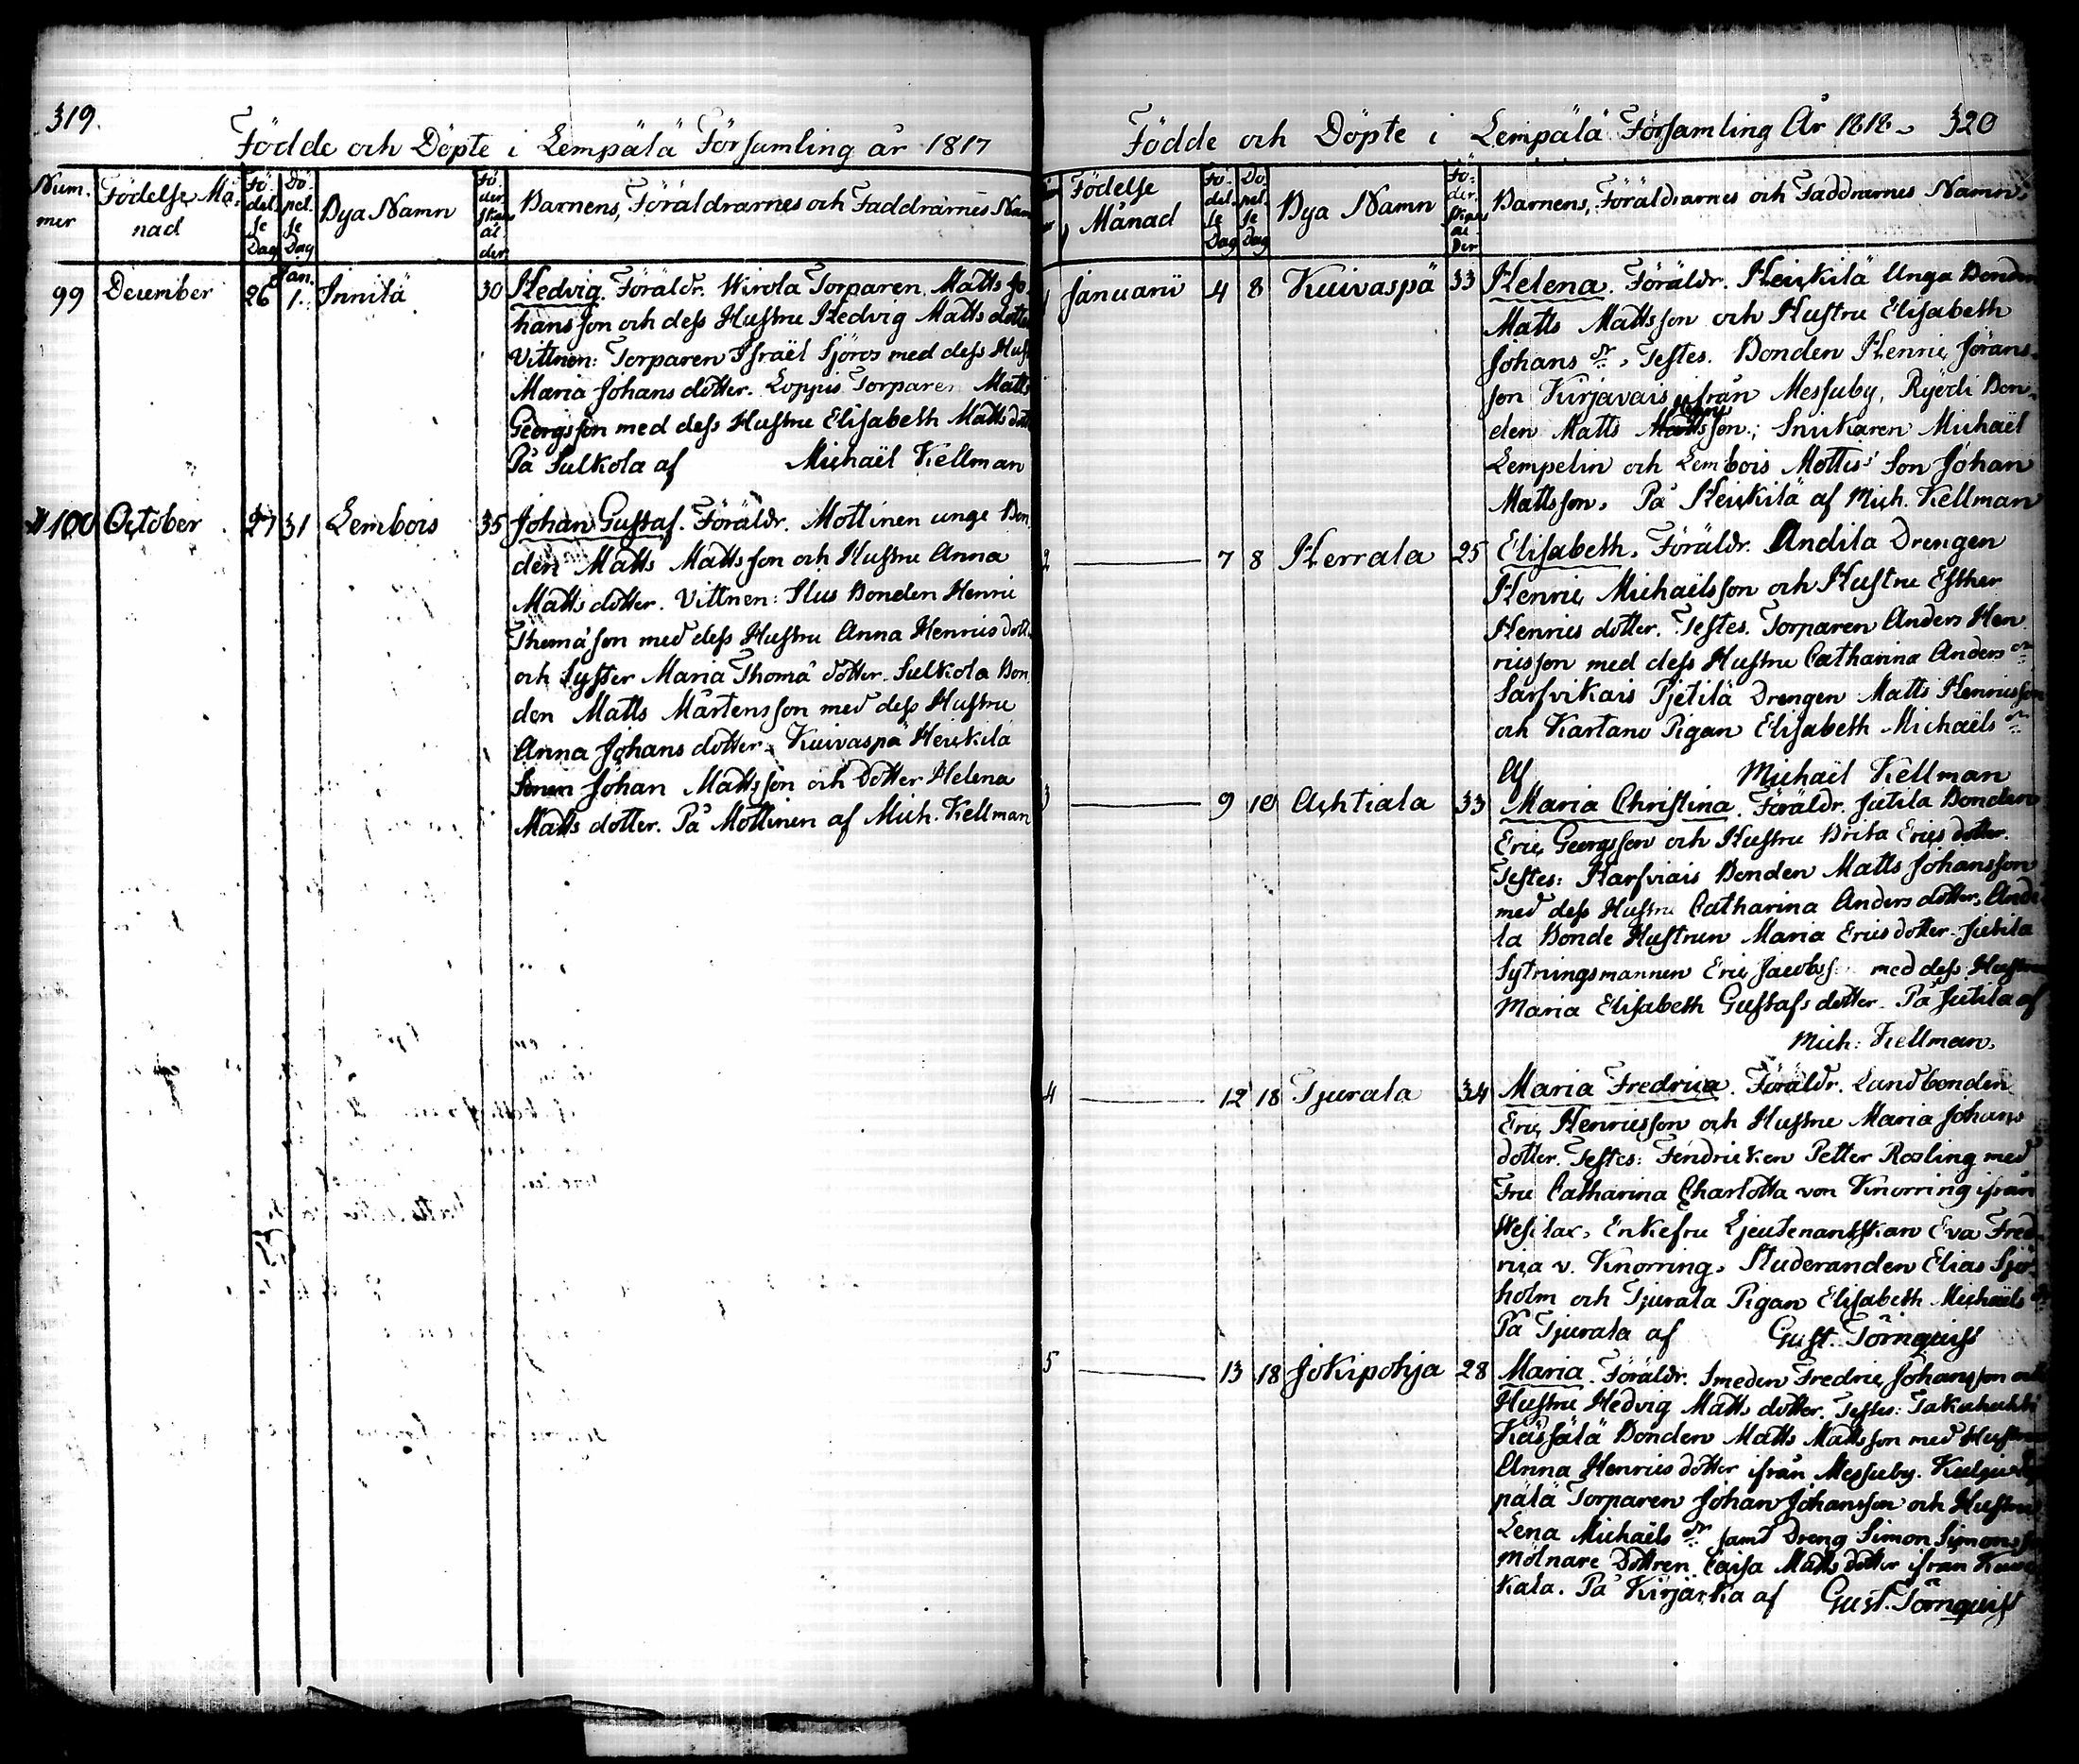 319.
Födde och Döpte i Lempälä Församling år 1817
Num-
mer
Födelse Må-
nad
Fö-
del-
se
Dag
Dö-
pel-
se
Dag
Bya Namn
Fö-
der-
skans
ål-
der
Barnens, Föräldrarnes och Faddrarnes Nam
99 December 26 Jan. 1. Innilä 30 Hedvig. Föräldr. Wirola Torparen Matts Jo
hansson och dess Hustru Hedvig Matts dotter
Vittnen: Torparen Israël Sjöros med dess Hust
Maria Johans dotter. Loppis Torparen Matts
Georgsson med dess Hustru Elisabeth Matts dott
På Sulkola af Michaël Kellman
100 October 27 31 Lembois 35 Johan Gustaf. Föräldr. Mottinen unge Bon
den Matts Mattsson och Hustru Anna
Matts dotter. Vittnen: Ilus Bonden Henric
Thomasson med dess Hustru Anna Henrics dott.
och Syster Maria Thomä dotter. Sulkola Bon
den Matts Mårtensson med dess Hustru
Anna Johans dotter. Kuivaspä Heikkilä
Sonen Johan Mattsson och Dotter Helena
Matts dotter. På Mottinen af Mich. Kellman
Födde och Döpte i Lempälä Församling År 1818. 320
Födelse
Månad
Fö-
del-
se
Dag
Dö
pel-
se
Dag
Bya Namn
Fö-
der-
skans
ål-
der
Barnens, Föräldrarnes och Faddrarnes Namn.
1 Januarii 4 8 Kuivaspä 33 Helena. Föräldr. Heikkilä Unga Bonden
Matts Mattsson och Hustru Elisabeth
Johans dr. Testes. Bonden Henric Jörans-
son Kirjavais ifrån Messuby, Ryödi Bon-
den Matts Johansson; Snickaren Michaël
Lempelin och Lembois Mottis' Son Johan
Mattsson. På Heikkilä af Mich. Kellman
2 7 8 Herrala 25 Elisabeth. Föräldr. Andila Drengen
Henric Michaelsson och Hustru Esther
Henrics dotter. Testes. Torparen Anders Hen
ricsson med dess Hustru Catharina Anders dr
Sarfvikais Pjetilä Drengen Matts Henricsson
och Kartano Pigan Elisabeth Michaëls dr
Af Michaël Kellman
3 9 10 Achtiala 33 Maria Christina. Föräldr. Jutila Bonden
Eric Georgsson och Hustru Brita Erics dotter.
Testes: Harfviais Bonden Matts Johansson
med dess Hustru Catharina Anders dotter. Andi
la Bonde Hustrun Maria Erics dotter. Jutila
Sytningsmannen Eric Jacobss med dess Hustru
Maria Elisabeth Gustafs dotter. På Jutila af
Mich: Kellman.
4 12 18 Tjurala 34 Maria Fredrica. Föräldr. Landbonden
Eric Henricsson och Hustru Maria Johans
dotter. Testes: Fendricken Petter Rosling med
Fru Catharina Charlotta von Knorring ifrån
Wesilax, Enkefru Ljeutenantskan Eva Fred-
rica v. Knorring, Studeranden Elias Sjö-
holm och Tjurala Pigan Elisabeth Michaëls dr
På Tjurala af Gust. Törnquist
5 13 18 Jokipohja 28 Maria. Föräldr. Smeden Fredric Johansson och
Hustru Hedvig Matts dotter. Testes: Takahuhti
Kässälä Bonden Matts Mattsson med Hustru
Anna Henrics dotter ifrån Messuby.
pälä Torparen Johan Johansson och Hustru
Lena Michaëls dr samt Dreng Simon Simonss
Mölnare Dottren Caisa Matts dotter ifrån
kala. På Kirjärka af Gust. Törnquist